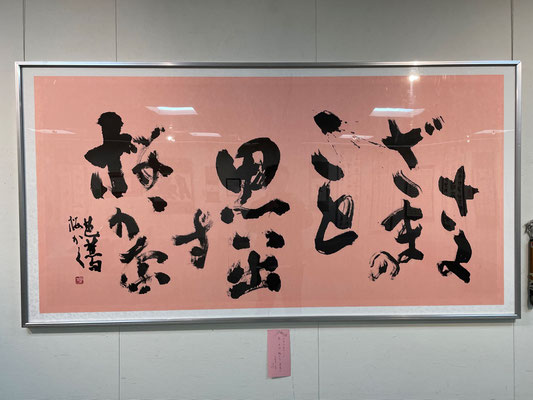 さま
ざまの
こと
思ひ出
す
桜かな
芭蕉